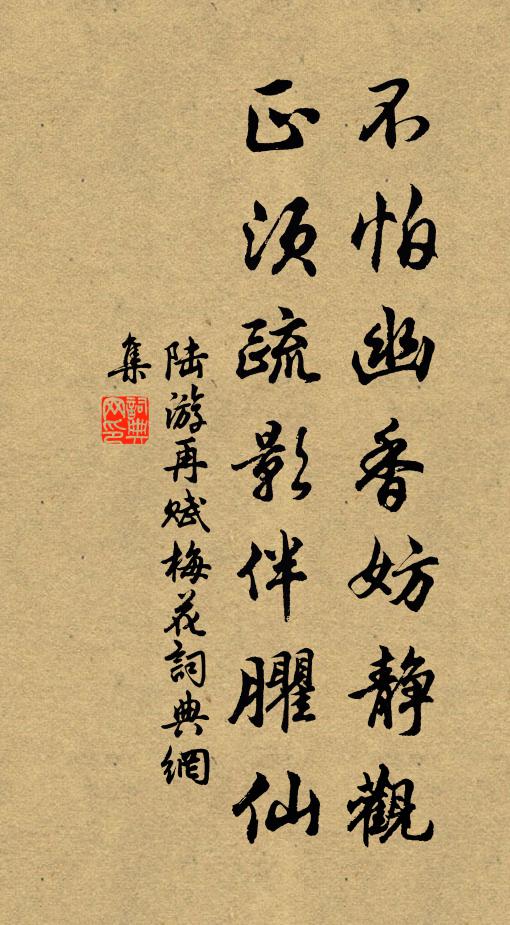 不怕幽香妨静觀
正須疏影伴臞仙
陆游再赋梅花詞典網
集
詞典
网印